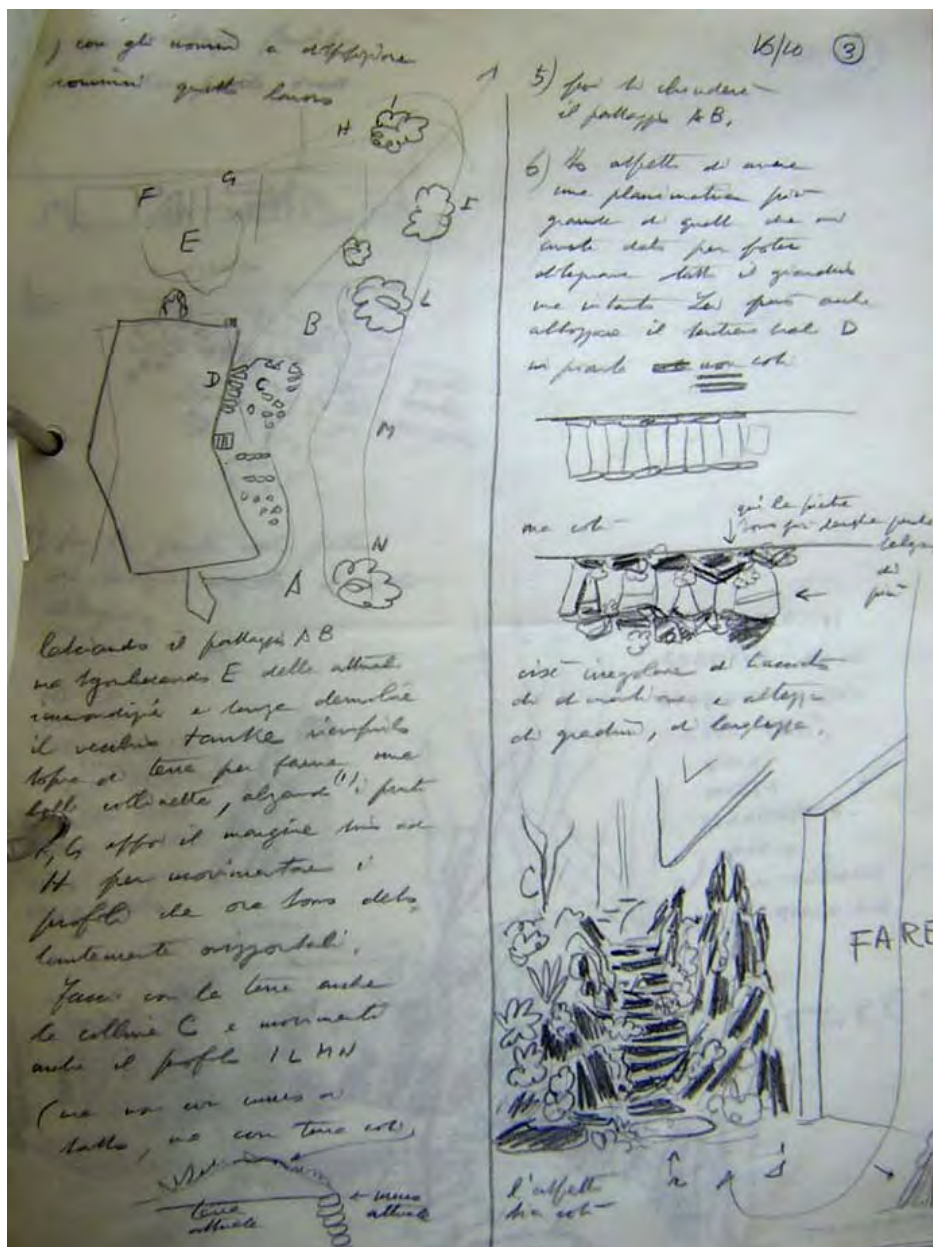 ) con gli uomini a disposizione
cominci questo lavoro
H
I
F
G
E
L
B
D
C
M
N
A
lasciando il passaggio A B
ma sgomberando E delle attuali
e senza demolire
il vecchio tanke riempirlo
sopra di terra per farne una
bella collinetta, alzando (1) i punti
F, G e poi il margine sino ad
H per movimentare i
profili che ora sono
orizzontali.
Facci con la terra anche
la collina C e movimenti
anche il profilo I L M N
(ma non con muro o
sassi, ma con terra così,
terra
attuale
← muro
attuale
16/10 ③
5) poi si chiuderà
il passaggio A B.
6) Ho aspetto di avere
una planimetria più
grande di quella che mi
avete dato per poter
disegnare tutto il giardino
ma intanto Lei può anche
abbozzare il sentiero D
in pianta non così
ma così
qui le pietre
sono più
di
più
cioè irregolare di tracciato
di direzione e altezza
di gradini, di larghezza.
C
FARE
l'aspetto
sia così